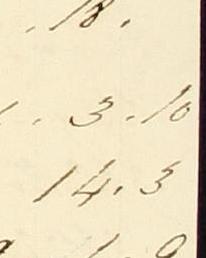 . 18 .
. 3 . 10
14 . 3